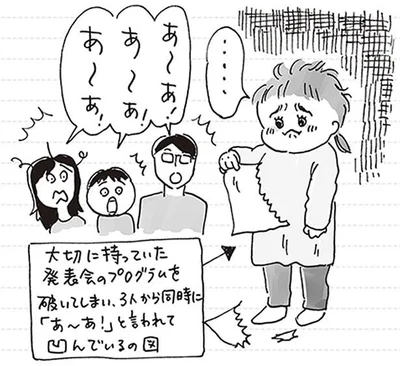 あ〜あ!
あ〜あ!
あ〜あ!
・・・・・
大切に持っていた
発表会のプログラムを
破いてしまい、3人から同時に
「あ〜あ!」と言われて
凹んでいるの図